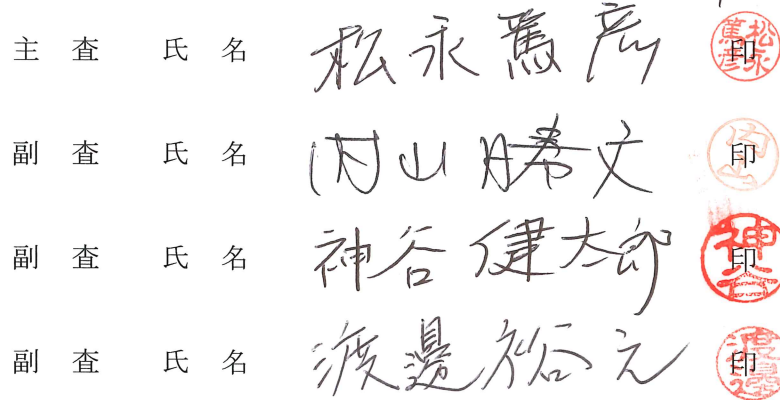 主査 氏名 松永篤彦 印
副査 氏名 内山勝文 印
副査 氏名 神谷健太郎 印
副査 氏名 渡邊裕之 印